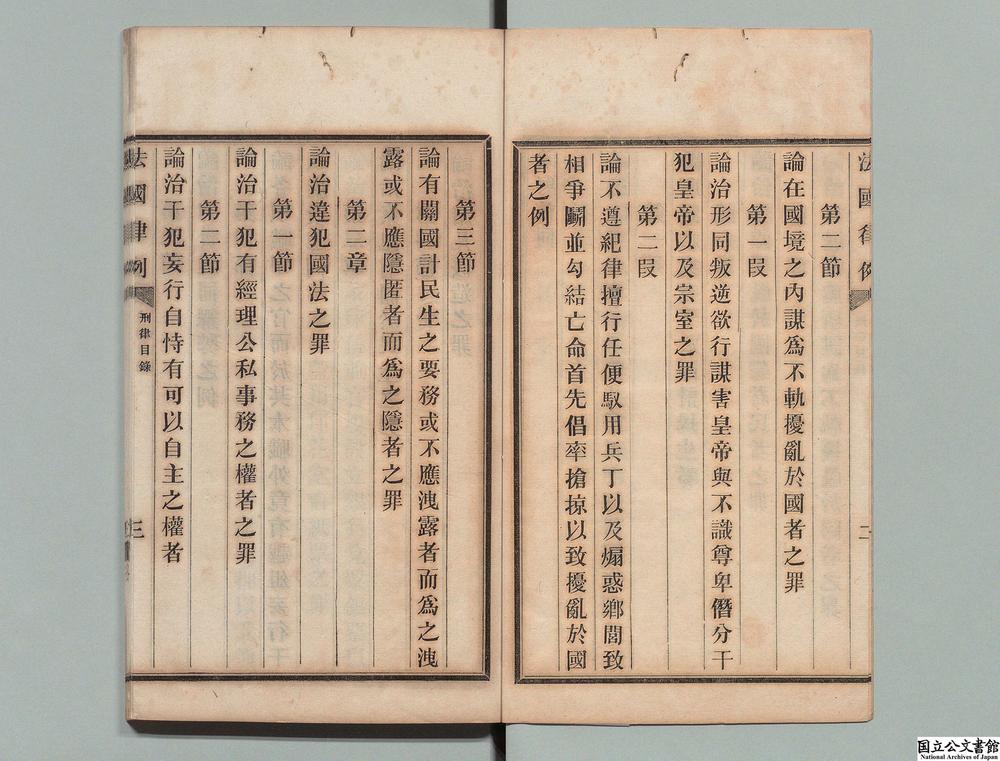 法國律例
二
第二節
論在國境之內謀爲不軌擾亂於國者之罪
第一段
論治形同叛逆欲行謀害皇帝與不識尊卑僭分干
犯皇帝以及宗室之罪
第二段
論不遵紀律擅行任便馭用兵丁以及煽惑鄉閭致
相爭鬭並勾結亡命首先倡率搶掠以致擾亂於國
者之例
第三節
論有關國計民生之要務或不應洩露者而爲之洩
露或不應隱匿者而爲之隱者之罪
第二章
論治違犯國法之罪
第一節
論治干犯有經理公私事務之權者之罪
第二節
論治干犯妄行自恃有可以自主之權者
法國律例
刑律目錄
三
国立公文書館
National Archives of Japan